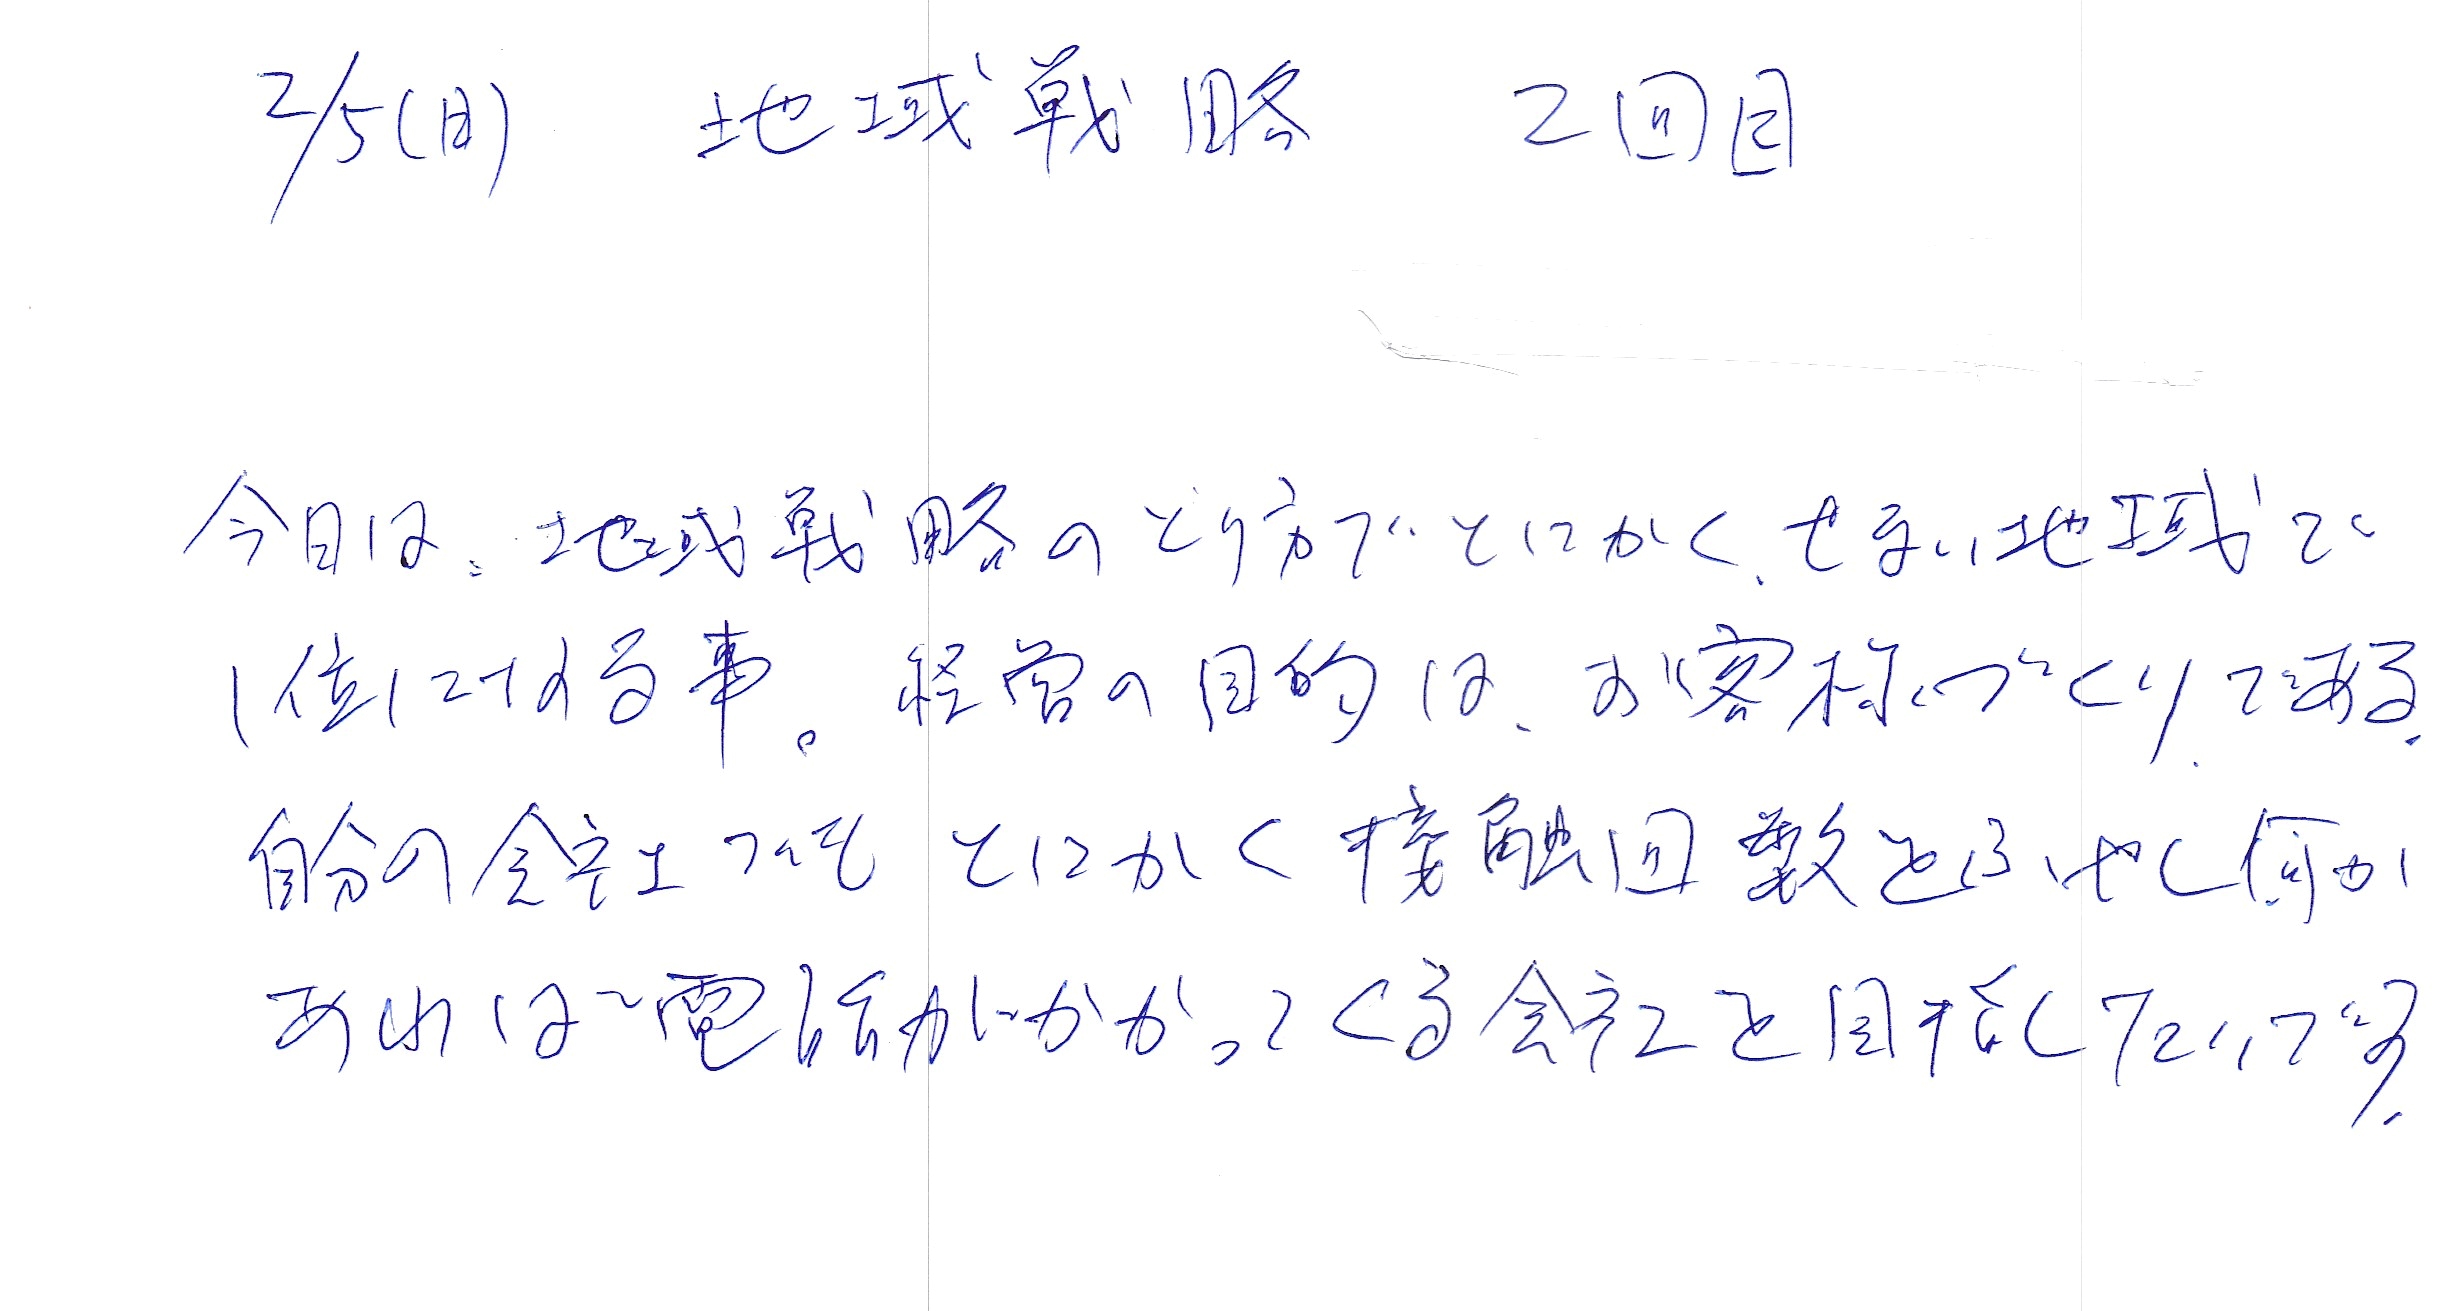 2/5(日) 地域戦略 2回目
今日は、地域戦略のとり方で、とにかく、せまい地域で
1位になる事。経営の目的は、お客様づくりである。
自分の会社でも とにかく接触回数をふやし何か
あれば電話がかかってくる会社を目指したいです。